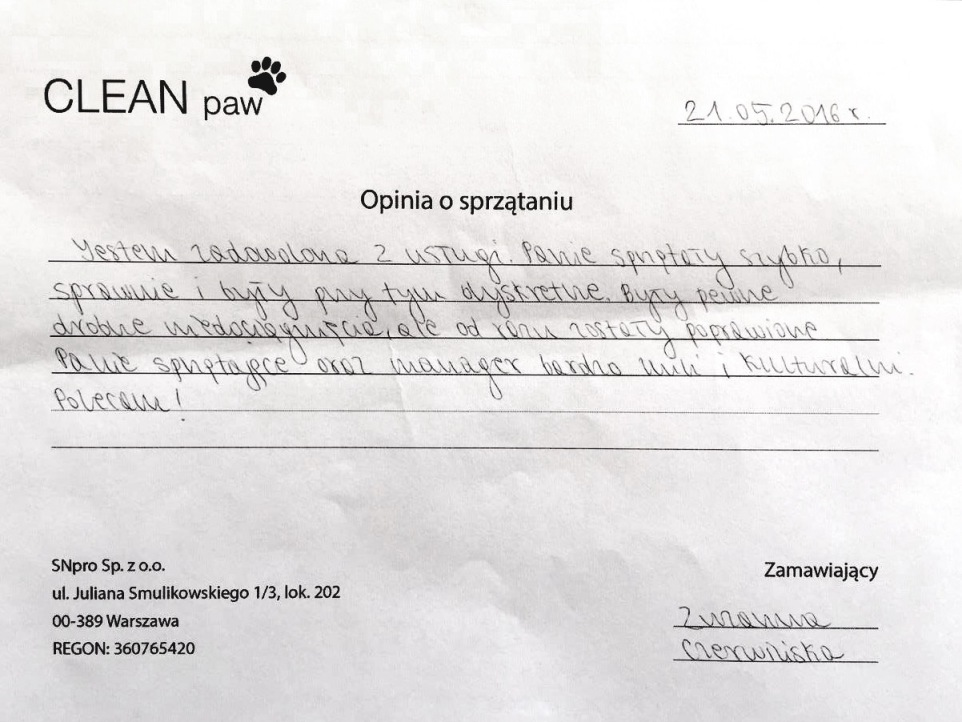 CLEAN paw
21.05.2016 r.
Opinia o sprzątaniu
Jestem zadowolona z usługi. Panie sprzątały szybko,
sprawnie i były przy tym dyskretne. Były pewne
drobne niedociągnięcia, ale od razu zostały poprawione
Panie sprzątające oraz manager bardzo mili i kulturalni.
Polecam!
SNpro Sp. z o.o.
ul. Juliana Smulikowskiego 1/3, lok. 202
00-389 Warszawa
REGON: 360765420
Zamawiający
Zuzanna
Czerwińska